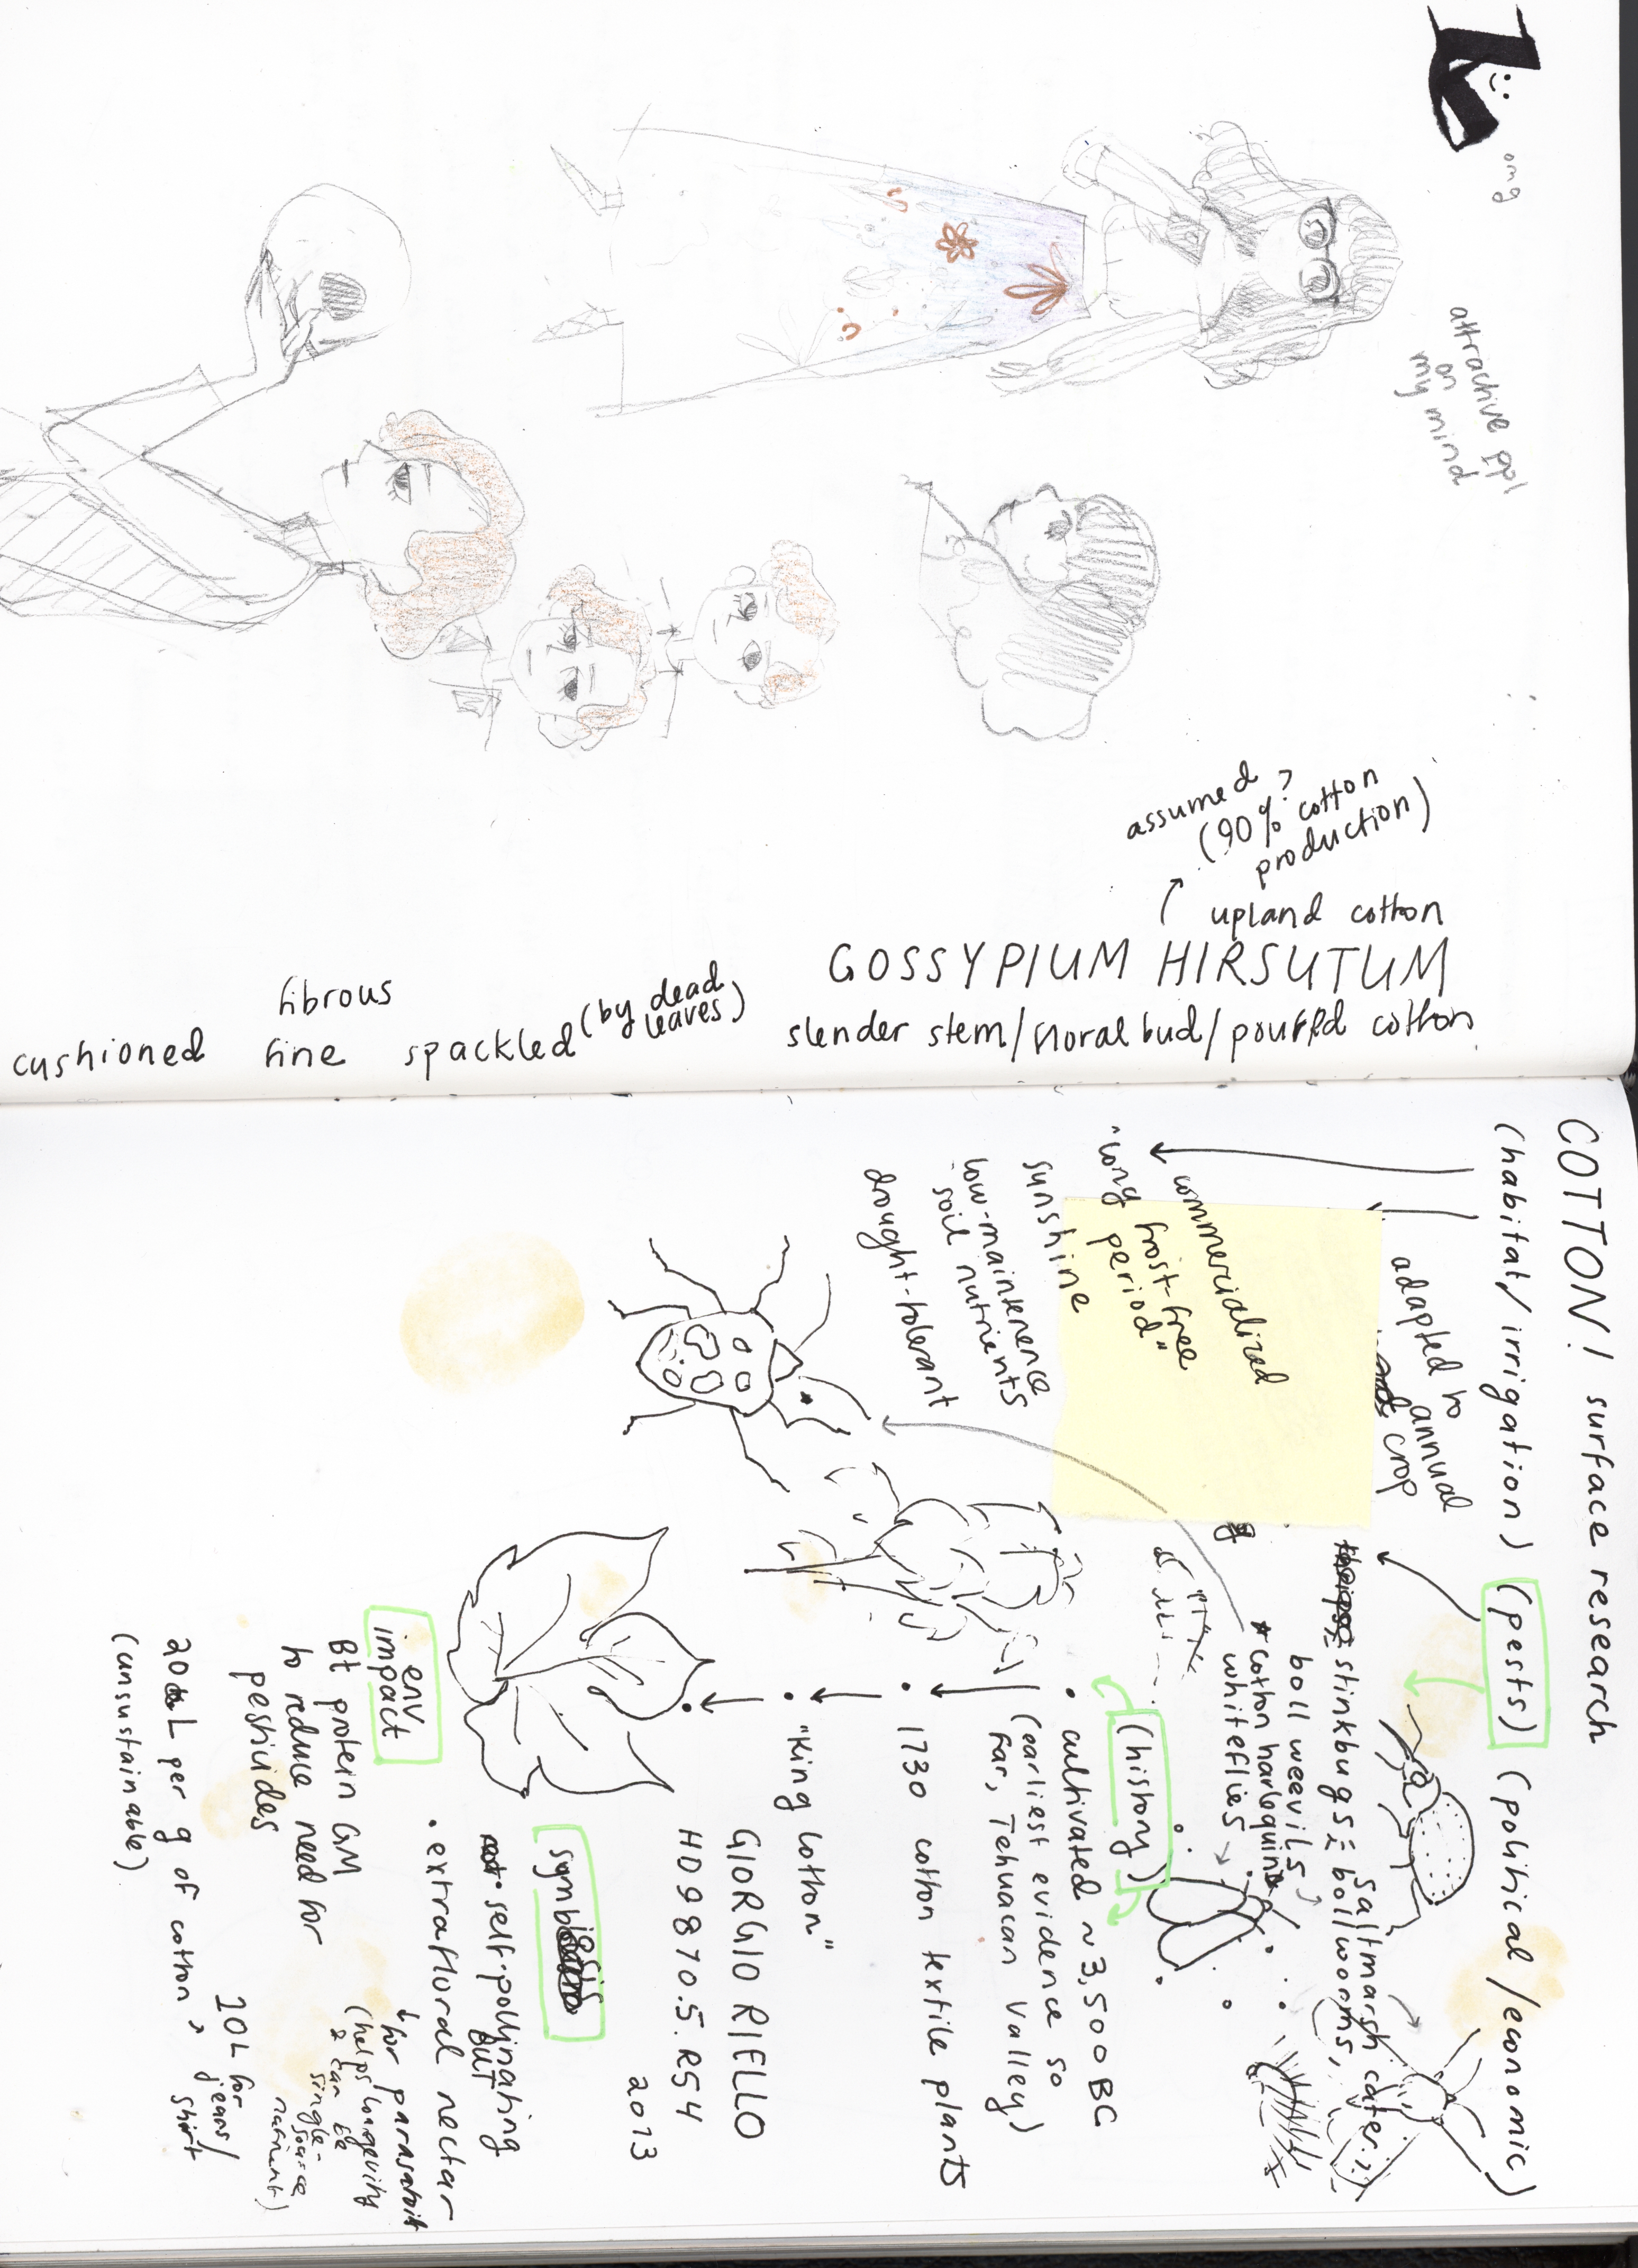 omg
attractive ppl
on
my mind
assumed?
(90% cotton
production)
upland cotton
GOSSYPIUM HIRSUTUM
slender stem/floral bud/pouffed cotton
fibrous
cushioned fine spackled (by dead
leaves)
COTTON! surface research
(habitat/irrigation) (pests) (political/economic)
adapted to
annual
crop
commercialized
"long frost-free
period"
sunshine
low-maintenence
soil nutrients
drought-tolerant
stinkbugs
bollworms,
saltmarsh cater.
boll weevils
*cotton harlequin
whiteflies
(history)
• cultivated ~3,500 BC
(earliest evidence so
far, Tehuacan Valley)
• 1730 cotton textile plants
• "King Cotton"
GIORGIO RIELLO
HD9870.5.R54
2013
self-pollinating
BUT
• extrafloral nectar
↳ for parasatoit
(helps longevity
& can be
single-
source
nutrient)
env
impact
Bt protein GM
to reduce need for
pesticides
20 L per g of cotton,
10L for
jeans/
shirt
(unsustainable)